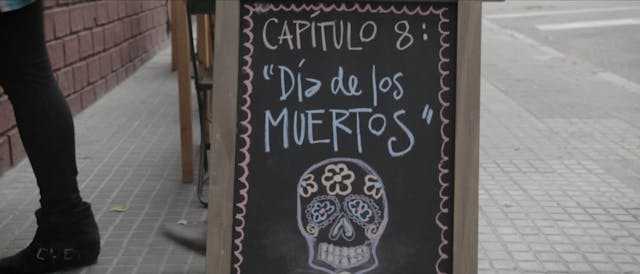 CAPÍTULO 8:
"Día de los
MUERTOS"